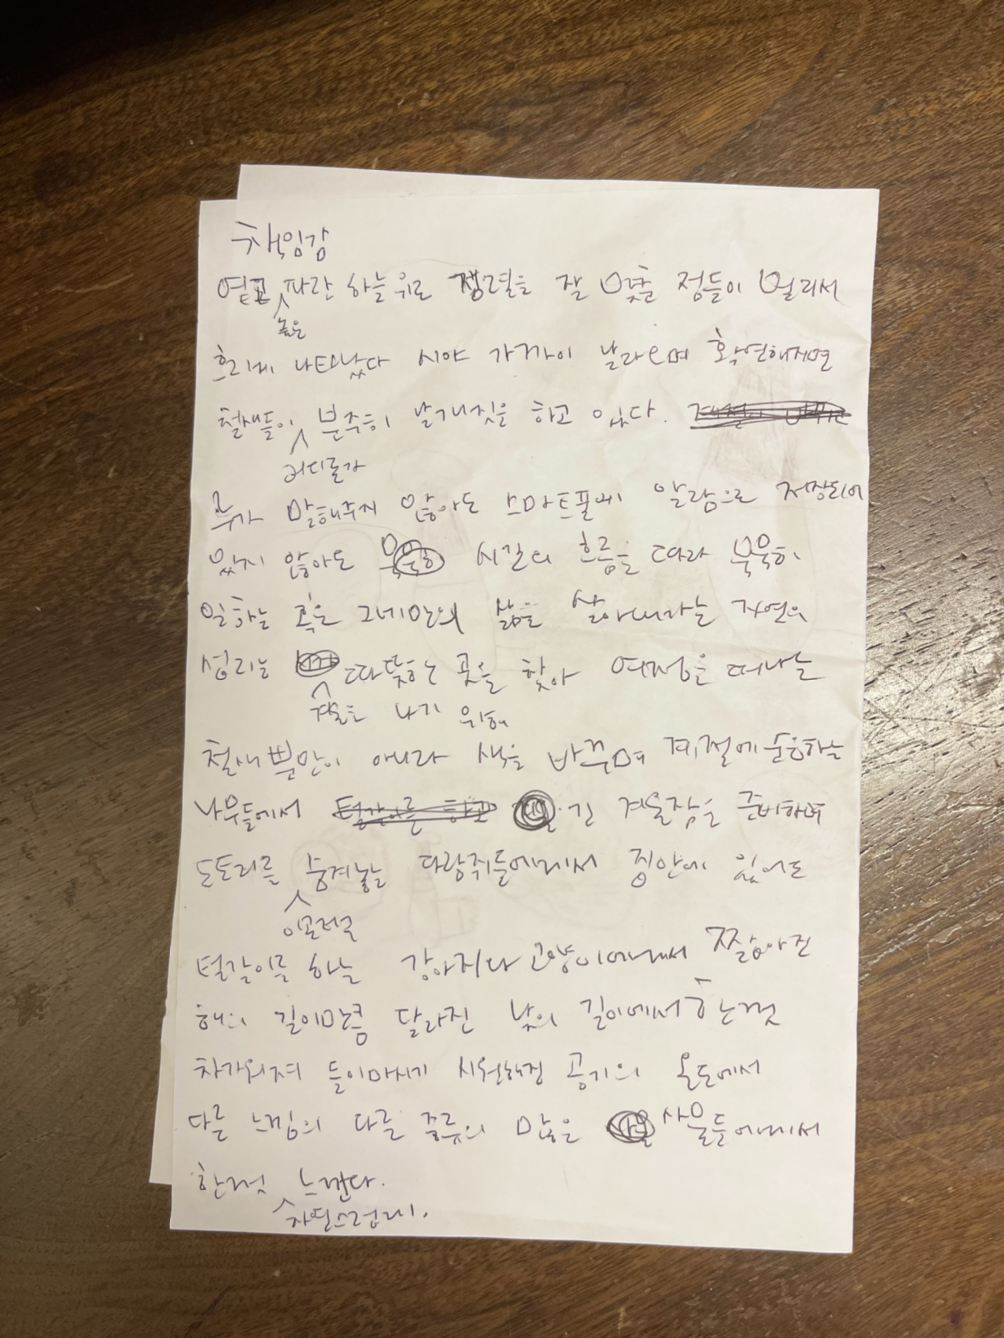 책임감
옅고 파란 하늘 위로 정렬을 잘 맞춘 점들이 멀리서
높은
흐리게 나타났다 시야 가까이 날라오며 확연해지면
철새들이 분주히 날개짓을 하고 있다.
어디론가
누가 말해주지 않아도 스마트폰에 알람으로 저장되어
있지 않아도 시간의 흐름을 따라 묵묵히
일하는 혹은 그네만의 삶을 살아내라는 자연의
섭리는 따뜻한 곳을 찾아 여정을 떠나는
겨울을 나기 위해
철새뿐만이 아니라 색을 바꾸며 계절에 순응하는
나무들에서 긴 겨울잠을 준비하며
도토리를 숨겨놓는 다람쥐들에게서 집안에 있어도
이곳저곳
털갈이를 하는 강아지나 고양이에게서 짧아진
해의 길이만큼 달라진 낮의 길이에서 한껏
차가워져 들이마시기 시원해진 공기의 온도에서
다른 느낌의 다른 종류의 많은 사물들에게서
한껏 느낀다.
자연스럽게.